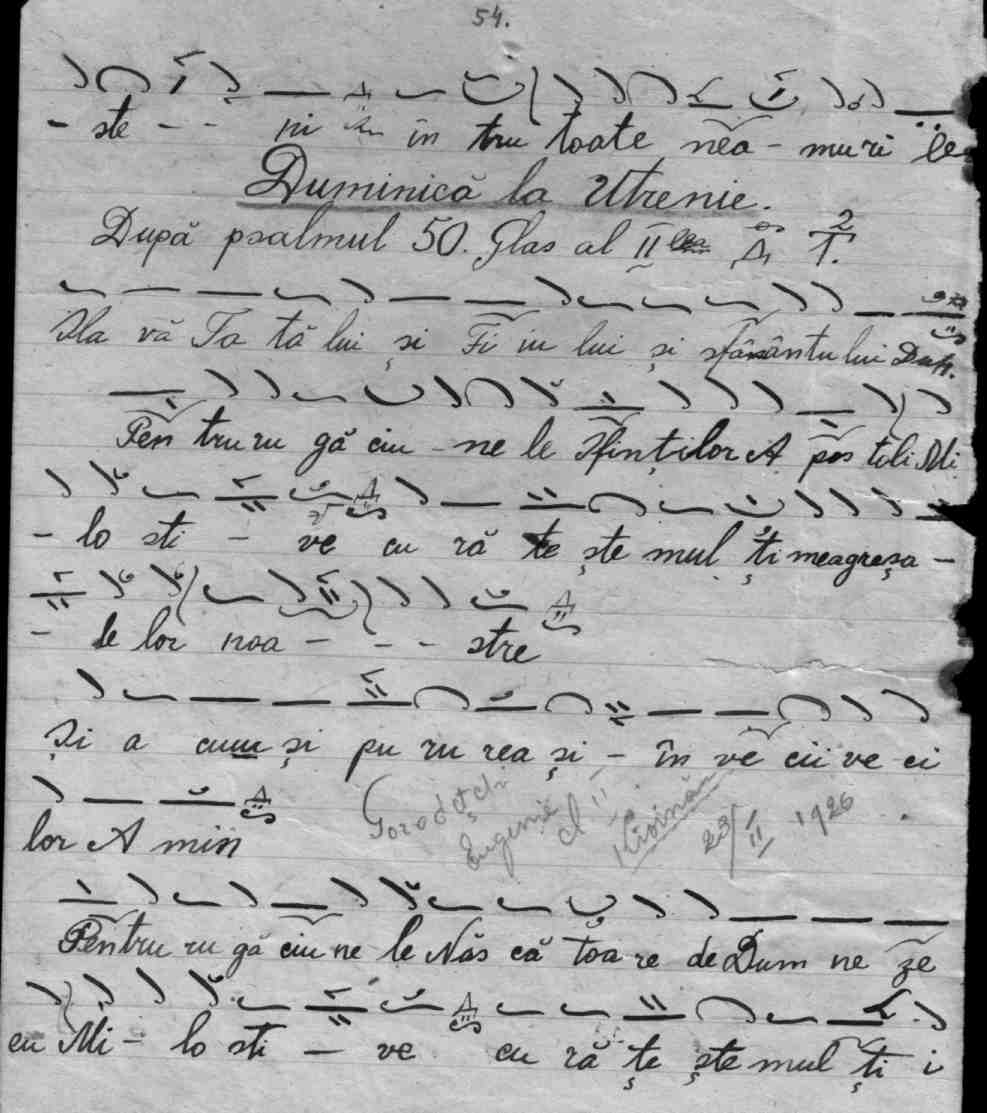 54.
- ste - - ni în tru toate nea - muri le
Duminică la Utrenie.
După psalmul 50. Glas al II lea Δ 2/1.
Sla vă Ta tă lui și Fi iu lui și sfântu lui Duh.
Pen tru ru gă ciu - ne le Sfinților A pos tili Mi
- lo sti - ve cu ră te ște mul ți mea greșa -
- le lor noa - - - stre
Și a cum și pu ru rea și - în ve cii ve ci
lor A min
Gorodețchi
Eugenie
cl II
Kișinău
23/II 1926
Pentru ru gă ciu ne le Năs că toa re de Dum ne ze
eu Mi - lo sti - ve cu ră țe ște mul ți i